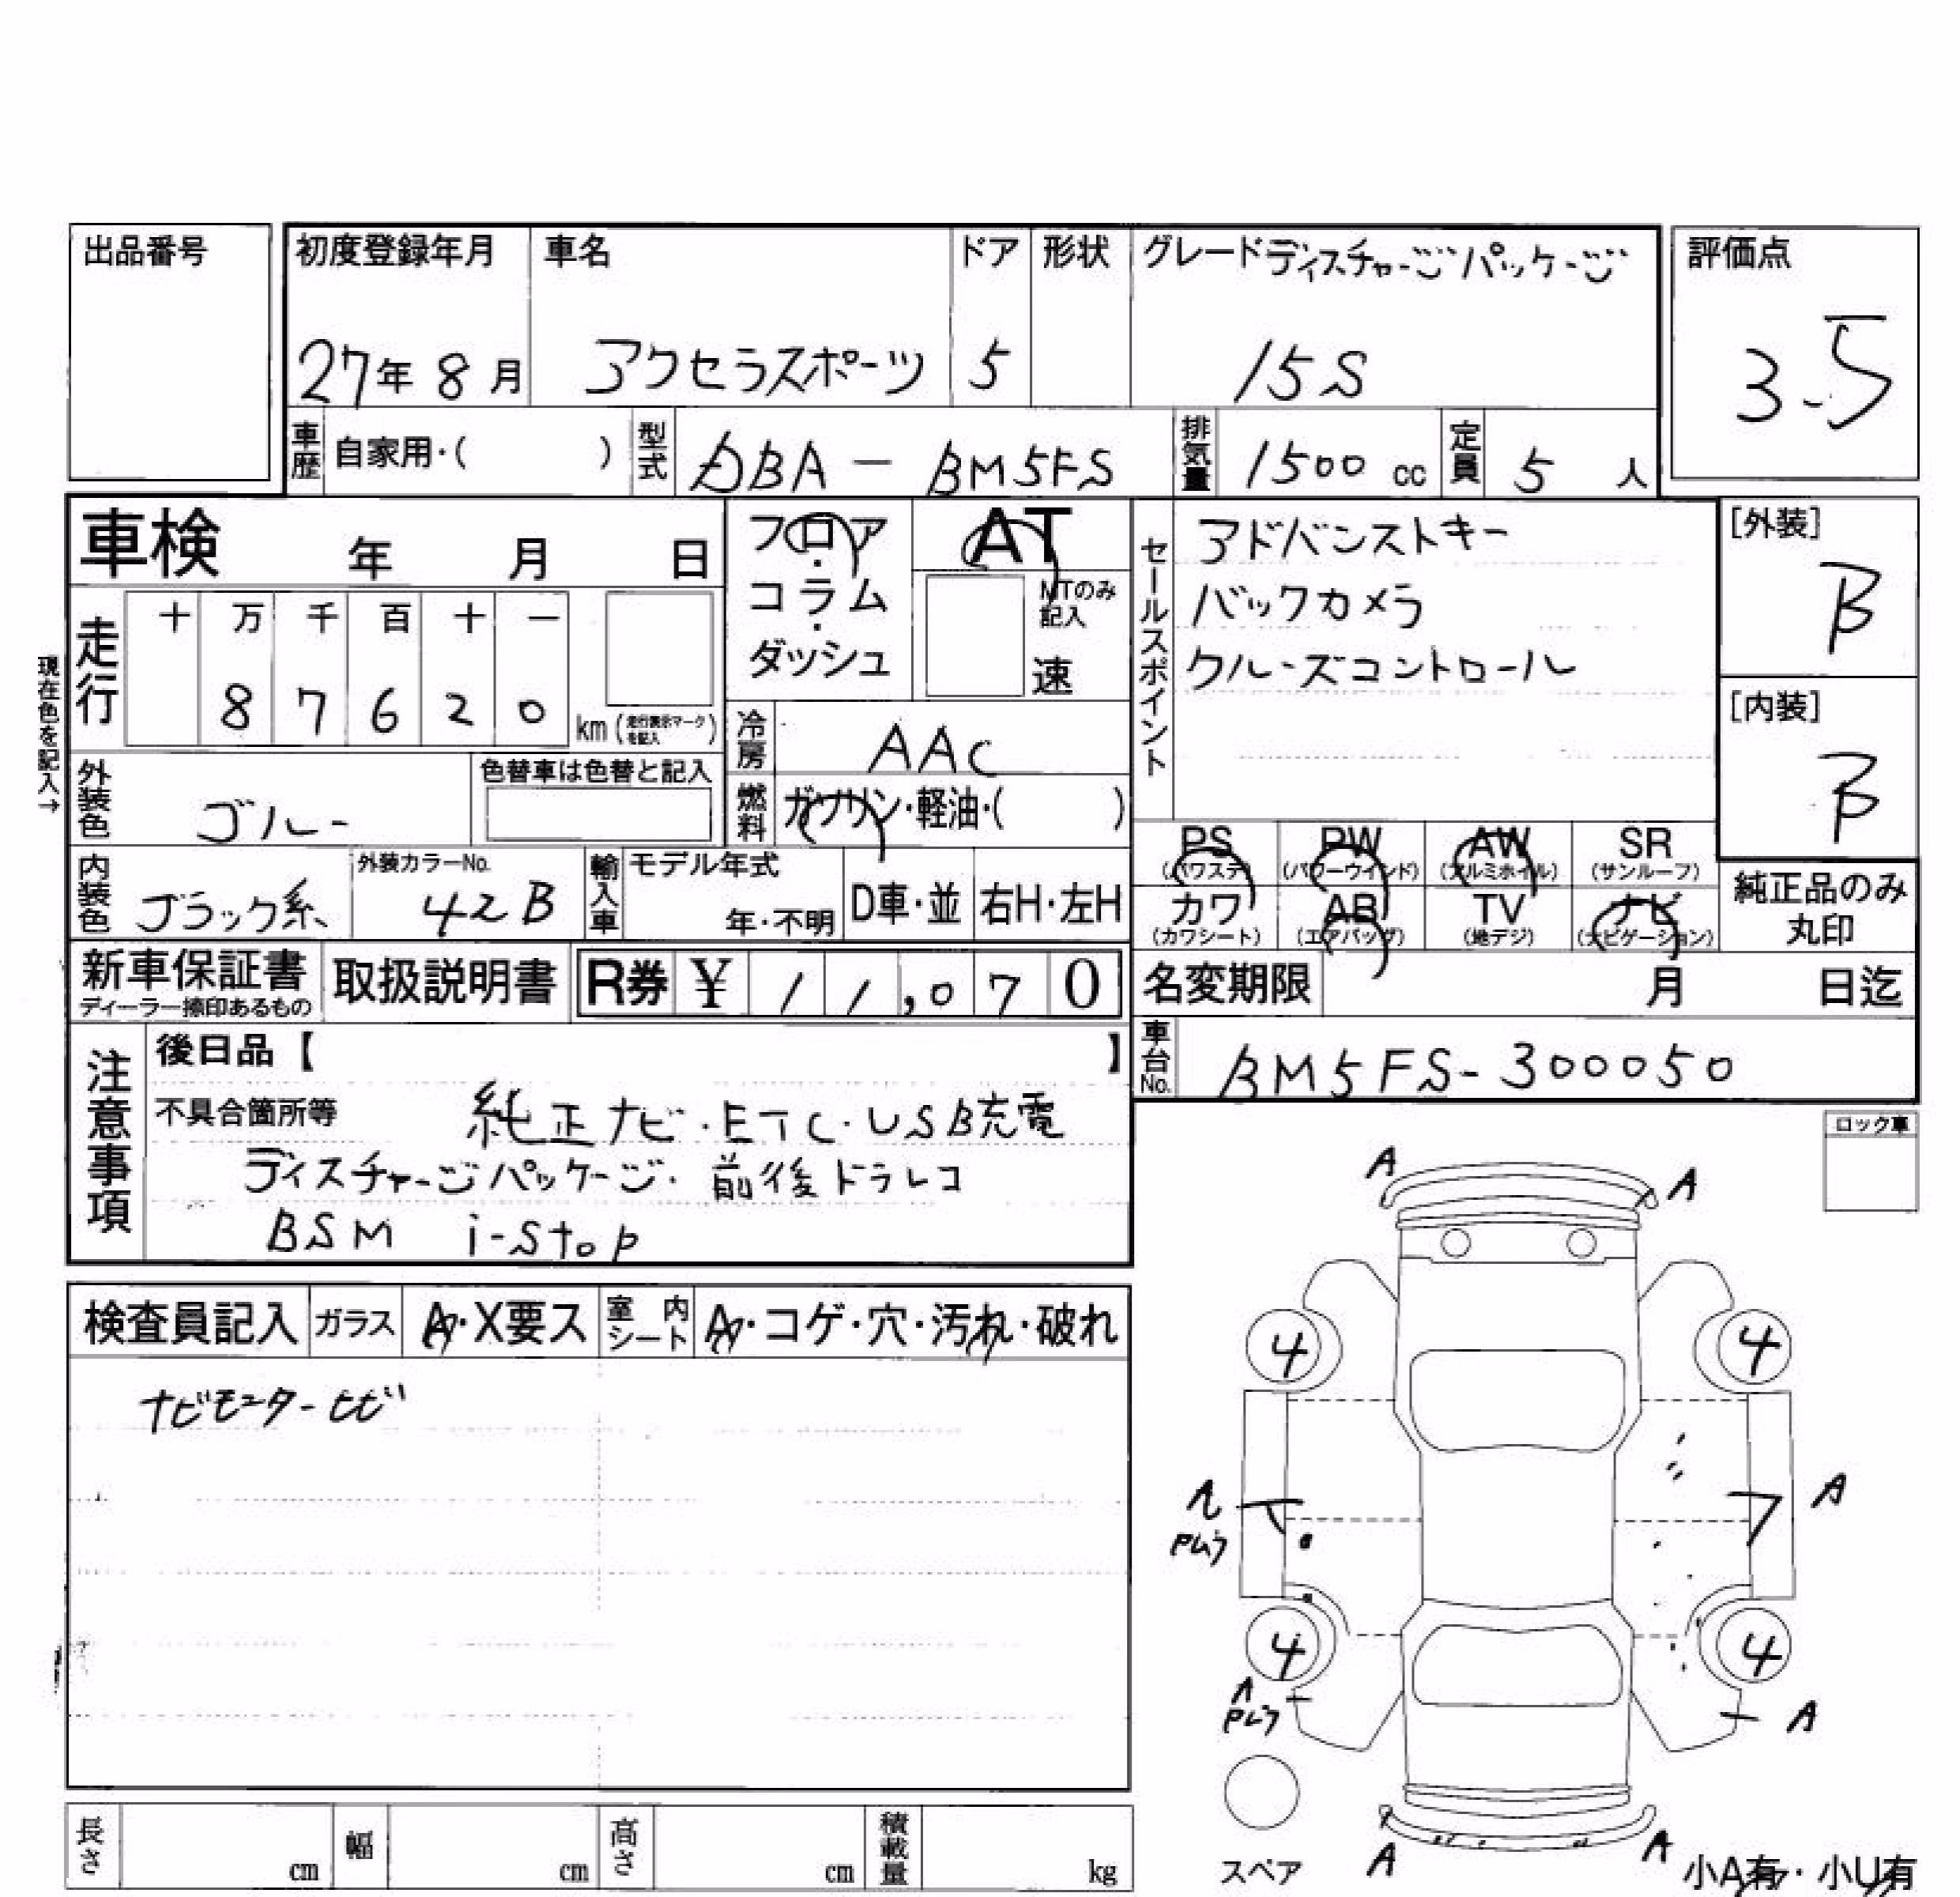 出品番号
初度登録年月 車名 ドア 形状 グレード ディスチャージパッケージ 評価点
27年 8月 アクセラスポーツ 5 15S 3.5
車歴 自家用・( ) 型式 DBA-BM5FS 排気量 1500 cc 定員 5 人
車検 年 月 日
フロア・コラム・ダッシュ
AT
MTのみ記入
速
現在色を記入→
走行 十 万 千 百 十 一
8 7 6 2 0 km (走行表示マークを記入)
冷房 AAC
燃料 ガソリン・軽油・( )
外装色 ブルー 色替車は色替と記入
内装色 ブラック系 外装カラーNo. 42B
輸入車 モデル年式 年・不明 D車・並 右H・左H
セールスポイント
アドバンストキー
バックカメラ
クルーズコントロール
[外装] B
[内装] B
PS (パワステ) PW (パワーウインド) AW (アルミホイル) SR (サンルーフ)
カワ (カワシート) AB (エアバッグ) TV (地デジ) ナビ (ナビゲーション)
純正品のみ丸印
新車保証書 ディーラー捺印あるもの 取扱説明書 R券 ¥ 11,070
名変期限 月 日迄
車台No. BM5FS-300050
注意事項
後日品【 】
不具合箇所等 純正ナビ・ETC・USB充電
ディスチャージパッケージ・前後ドラレコ
BSM i-stop
ロック車
検査員記入 ガラス A・X要ス 室内シート A・コゲ・穴・汚れ・破れ
ナビモニターヒビ
A A
4 4
A
4 4
A
A A
スペア
小A有・小U有
長さ cm 幅 cm 高さ cm 積載量 kg